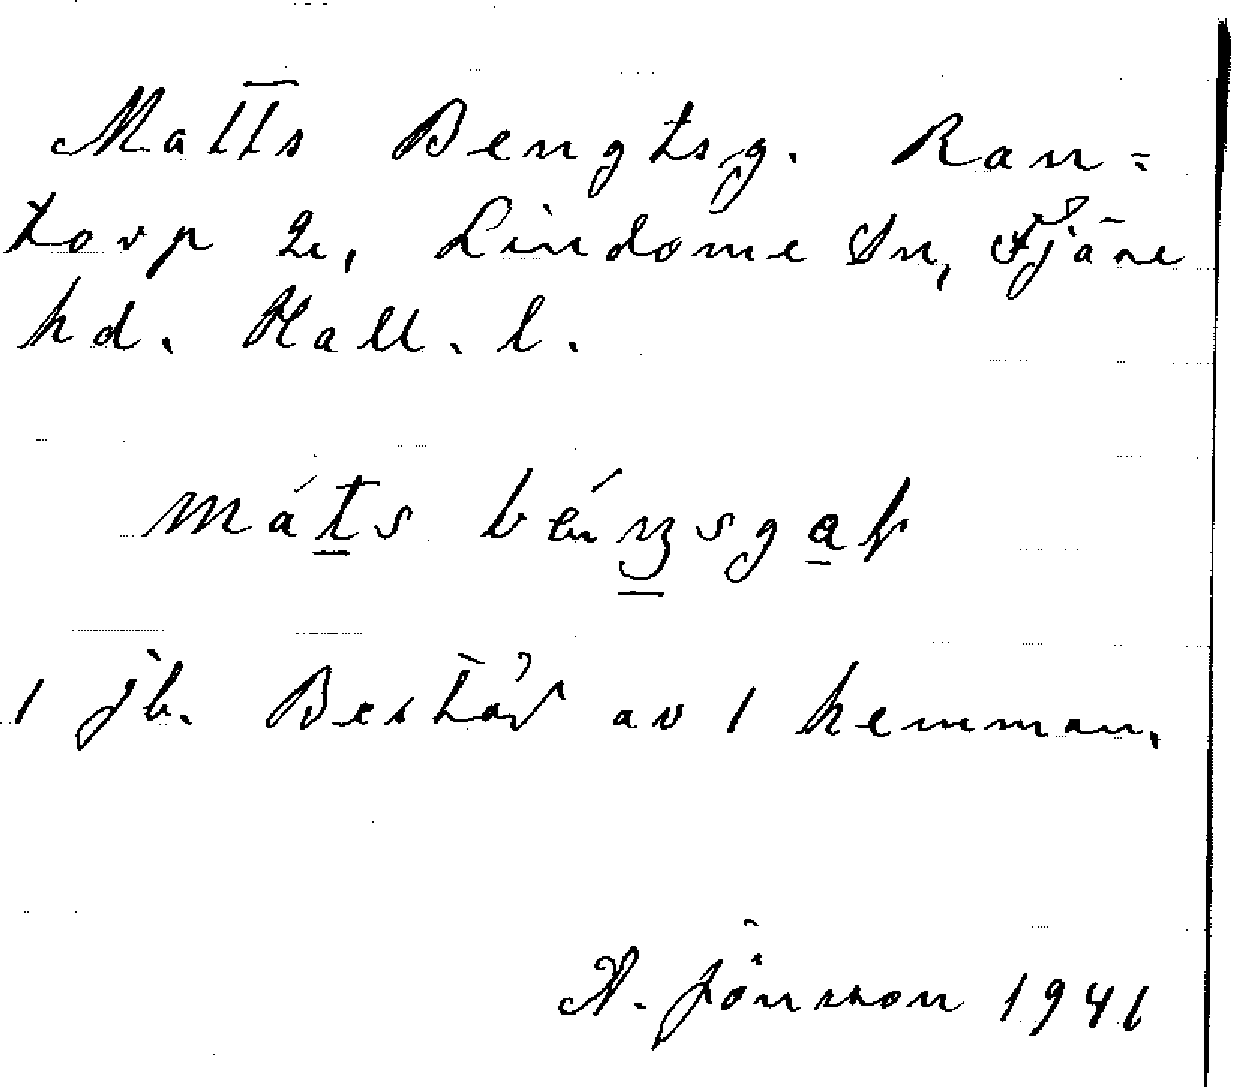 Matts Bengtsg. Ran=
torp 2, Lindome Sn, Fjäre
hd. Hall. l.
1 jb. Består av 1 hemman.
A. Jönsson 1941